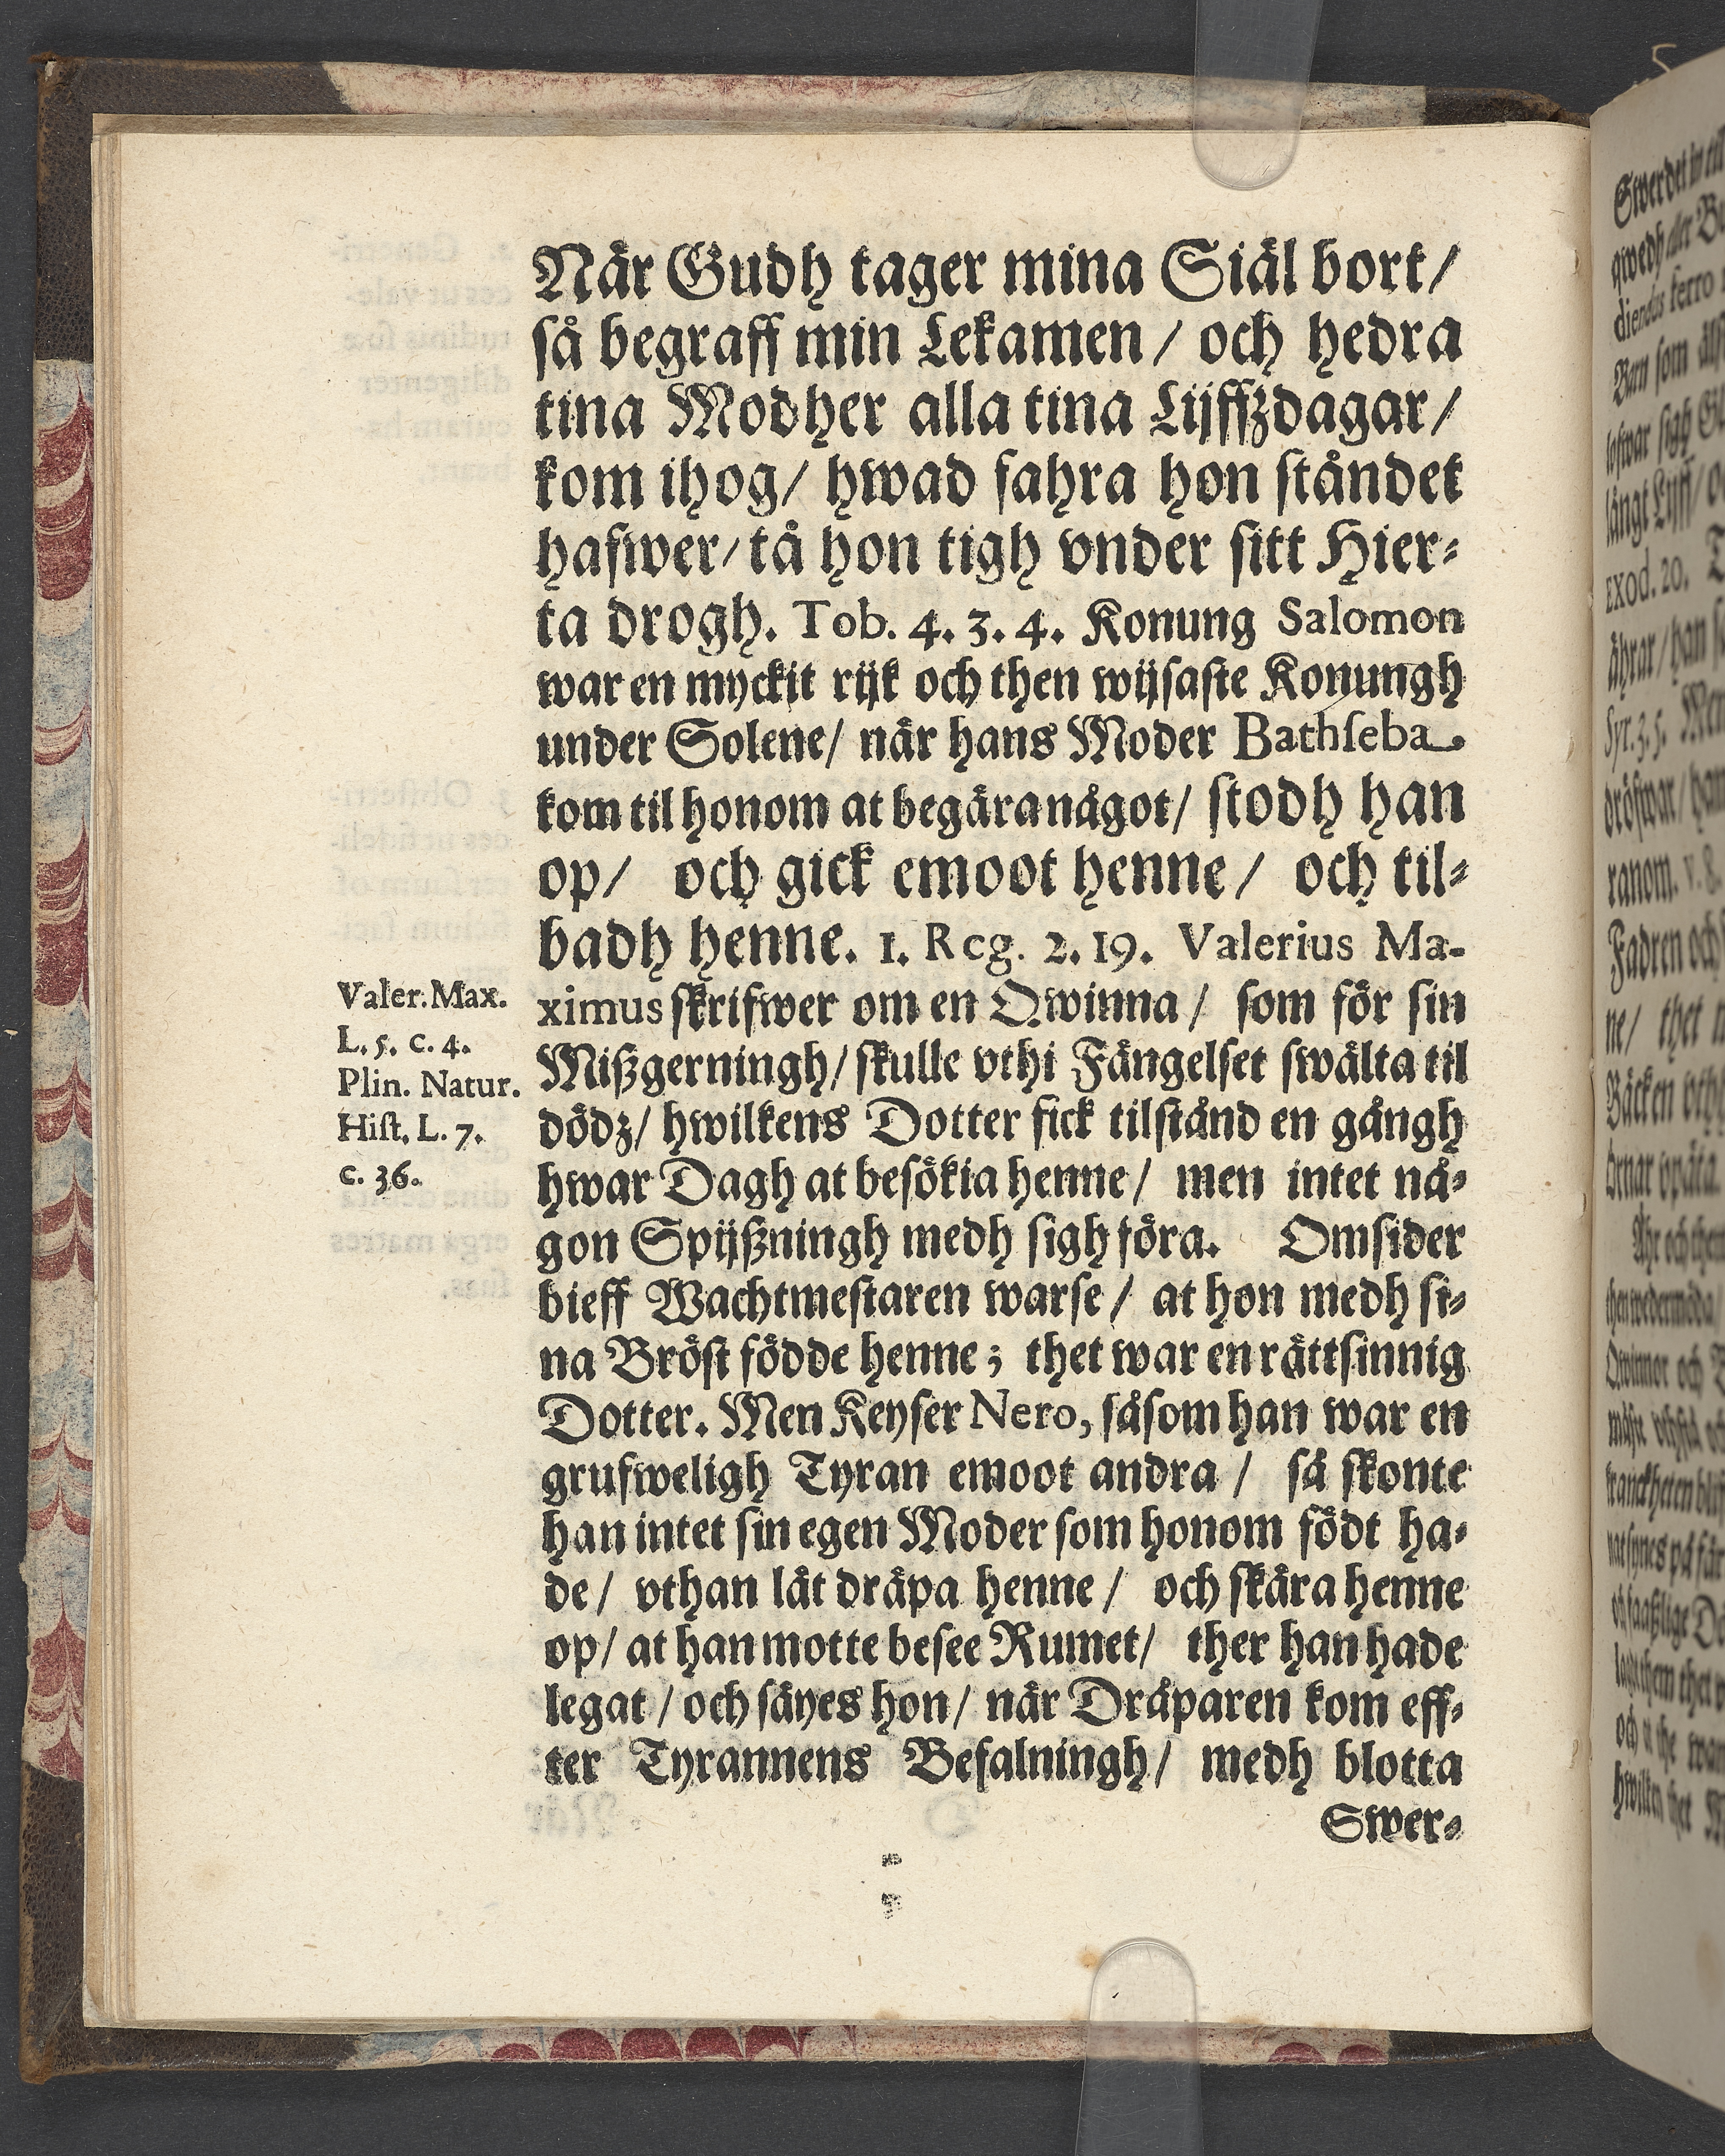 När Gudh tager mina Siäl bort/
så begraff min Lekamen / och hedra
tina Modher alla tina Lijffzdagar/
kom ihog/ hwad fahra hon ståndet
hafwer/ tå hon tigh vnder sitt Hier-
ta drogh. Tob. 4. 3. 4. Konung Salomon
war en myckit rijk och then wijsaste Konungh
under Solene/ när hans Moder Bathseba
kom til honom at begära något/ stodh han
op/ och gick emoot henne / och til-
badh henne. 1. Reg. 2. 19. Valerius Ma-
ximus skrifwer om en Qwinna / som för sin
Mißgerningh/ skulle vthi Fängelset swälta til
dödz/ hwilkens Dotter fick tilstånd en gångh
hwar Dagh at besökia henne / men intet nå-
gon Spijßningh medh sigh föra. Omsider
bieff Wachtmestaren warse / at hon medh si-
na Bröst födde henne; thet war en rättsinnig
Dotter. Men Keyser Nero, såsom han war en
grufweligh Tyran emoot andra / så skonte
han intet sin egen Moder som honom födt ha-
de / vthan låt dräpa henne / och skära henne
op/ at han motte besee Rumet/ ther han hade
legat / och säyes hon/ när Dräparen kom eff-
ter Tyrannens Befalningh/ medh blotta
Swer-
Valer. Max.
L. 5. c. 4.
Plin. Natur.
Hist. L. 7.
c. 36.